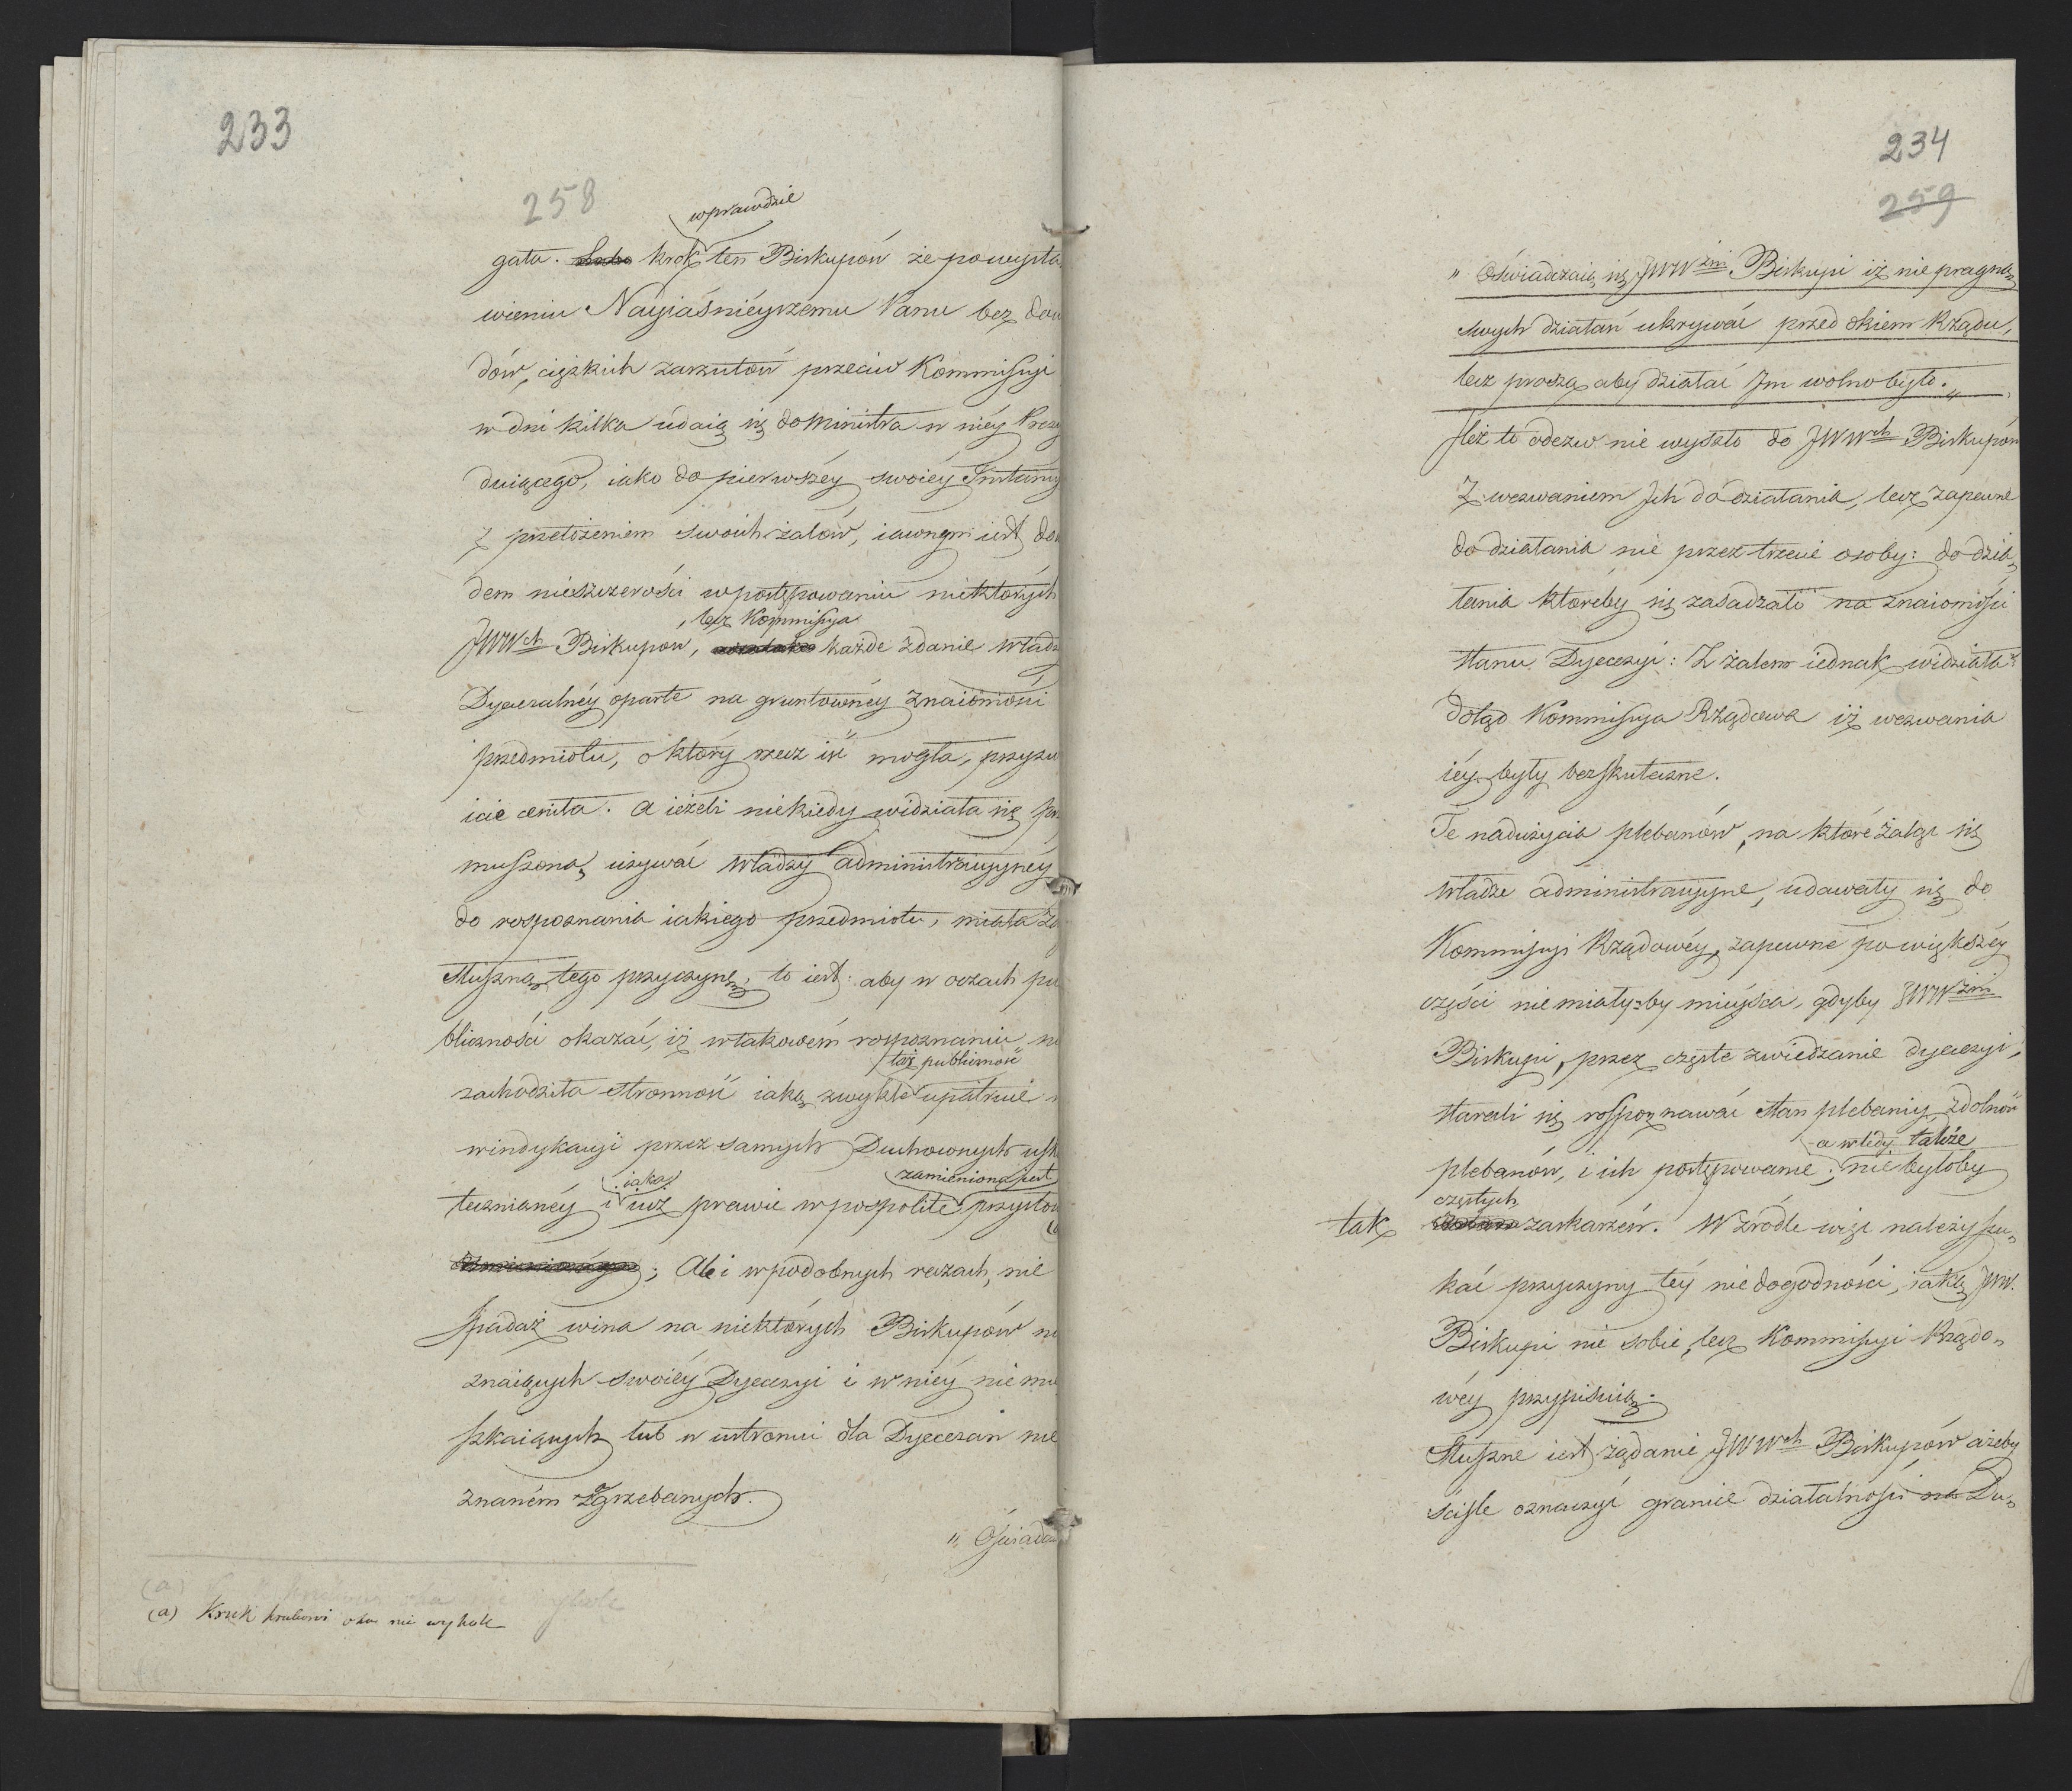 233
258
wprawdzie
gata. krok ten Biskupów że po wysta
wieniu Nayiaśnieyszemu Panu bez dow
dów, ciężkich zarzutów przeciw Kommissyi
w dni kilka udaią się do Ministra w niey Prezy
duiącego, iako do pierwszéy swoiéy Instancyi
z przełożeniem swoich żalów, iawnym iest do
dem nieszczerości w postępowaniu niektórych
, lecz Kommissya
JWWch Biskupów, każde zdanie Władz
Dyecezalnéy oparte na gruntownéy znaiomości
przedmiotu, o który rzecz iść mogła, przyzw
icie ceniła. A ieżeli niekiedy widziała się przy
muszoną używać władzy administracyynéy
do rospoznania iakiego przedmiotu, miała za
słuszną tego przyczynę, to iest: aby w oczach pu
bliczności okazać, iż w takowém rospoznaniu ni
taż publiczność
zachodziła stronność iaką zwykle upatruie
windykacyi przez samych Duchownych usk
iaka zamieniona iest
tecznianéy i iuż prawie w pospolite przysłow
(a
; Ale i w podobnych rzeczach, nie
spadaż wina na niektórych Biskupów nie
znaiących swoiéy Dyecezyi i w niéy nie mie
szkaiących lub w ustroniu dla Dyecezan nie
znaném zagrzebanych.
„ Oświadcz
(a) Kruk krukowi oka nie wykole
234
259
„ Oświadczaią się JWWżni Biskupi iż nie pragną
swych działań ukrywać przed okiem Rządu,
lecz proszą aby działać Im wolno było. „
Ileż to odezw nie wyszło do JWWch Biskupów
z wezwaniem Ich do działania, lecz zapewne
do działania nie przez trzecie osoby: do dzia„
łania któreby się zasadzało na znaiomości
stanu Dyecezyi: Z żalem iednak widziała
dotąd Kommissya Rządowa iż wezwania
iéy były bezskuteczne.
Te nadużycia plebanów, na które żaląc się
władze administracyyne, udawały się do
Kommissyi Rządowéy, zapewne po większéy
części nie miały=by mieysca, gdyby JWWżni
Biskupi, przez częste zwiedzanie dyecezyi,
starali się rospoznawać stan plebaniy, zdolność
a wtedy także
plebanów, i ich postępowanie; nie byłoby
częstych
tak zaskarżeń. W źródle więc należy szu„
kać przyczyny téy niedogodności, iaką JWW.
Biskupi nie sobie, lecz Kommissyi Rządo„
wéy przypisuią.
Słuszne iest żądanie JWWch Biskupów ażeby
ściśle oznaczyć granice działalności na Du„